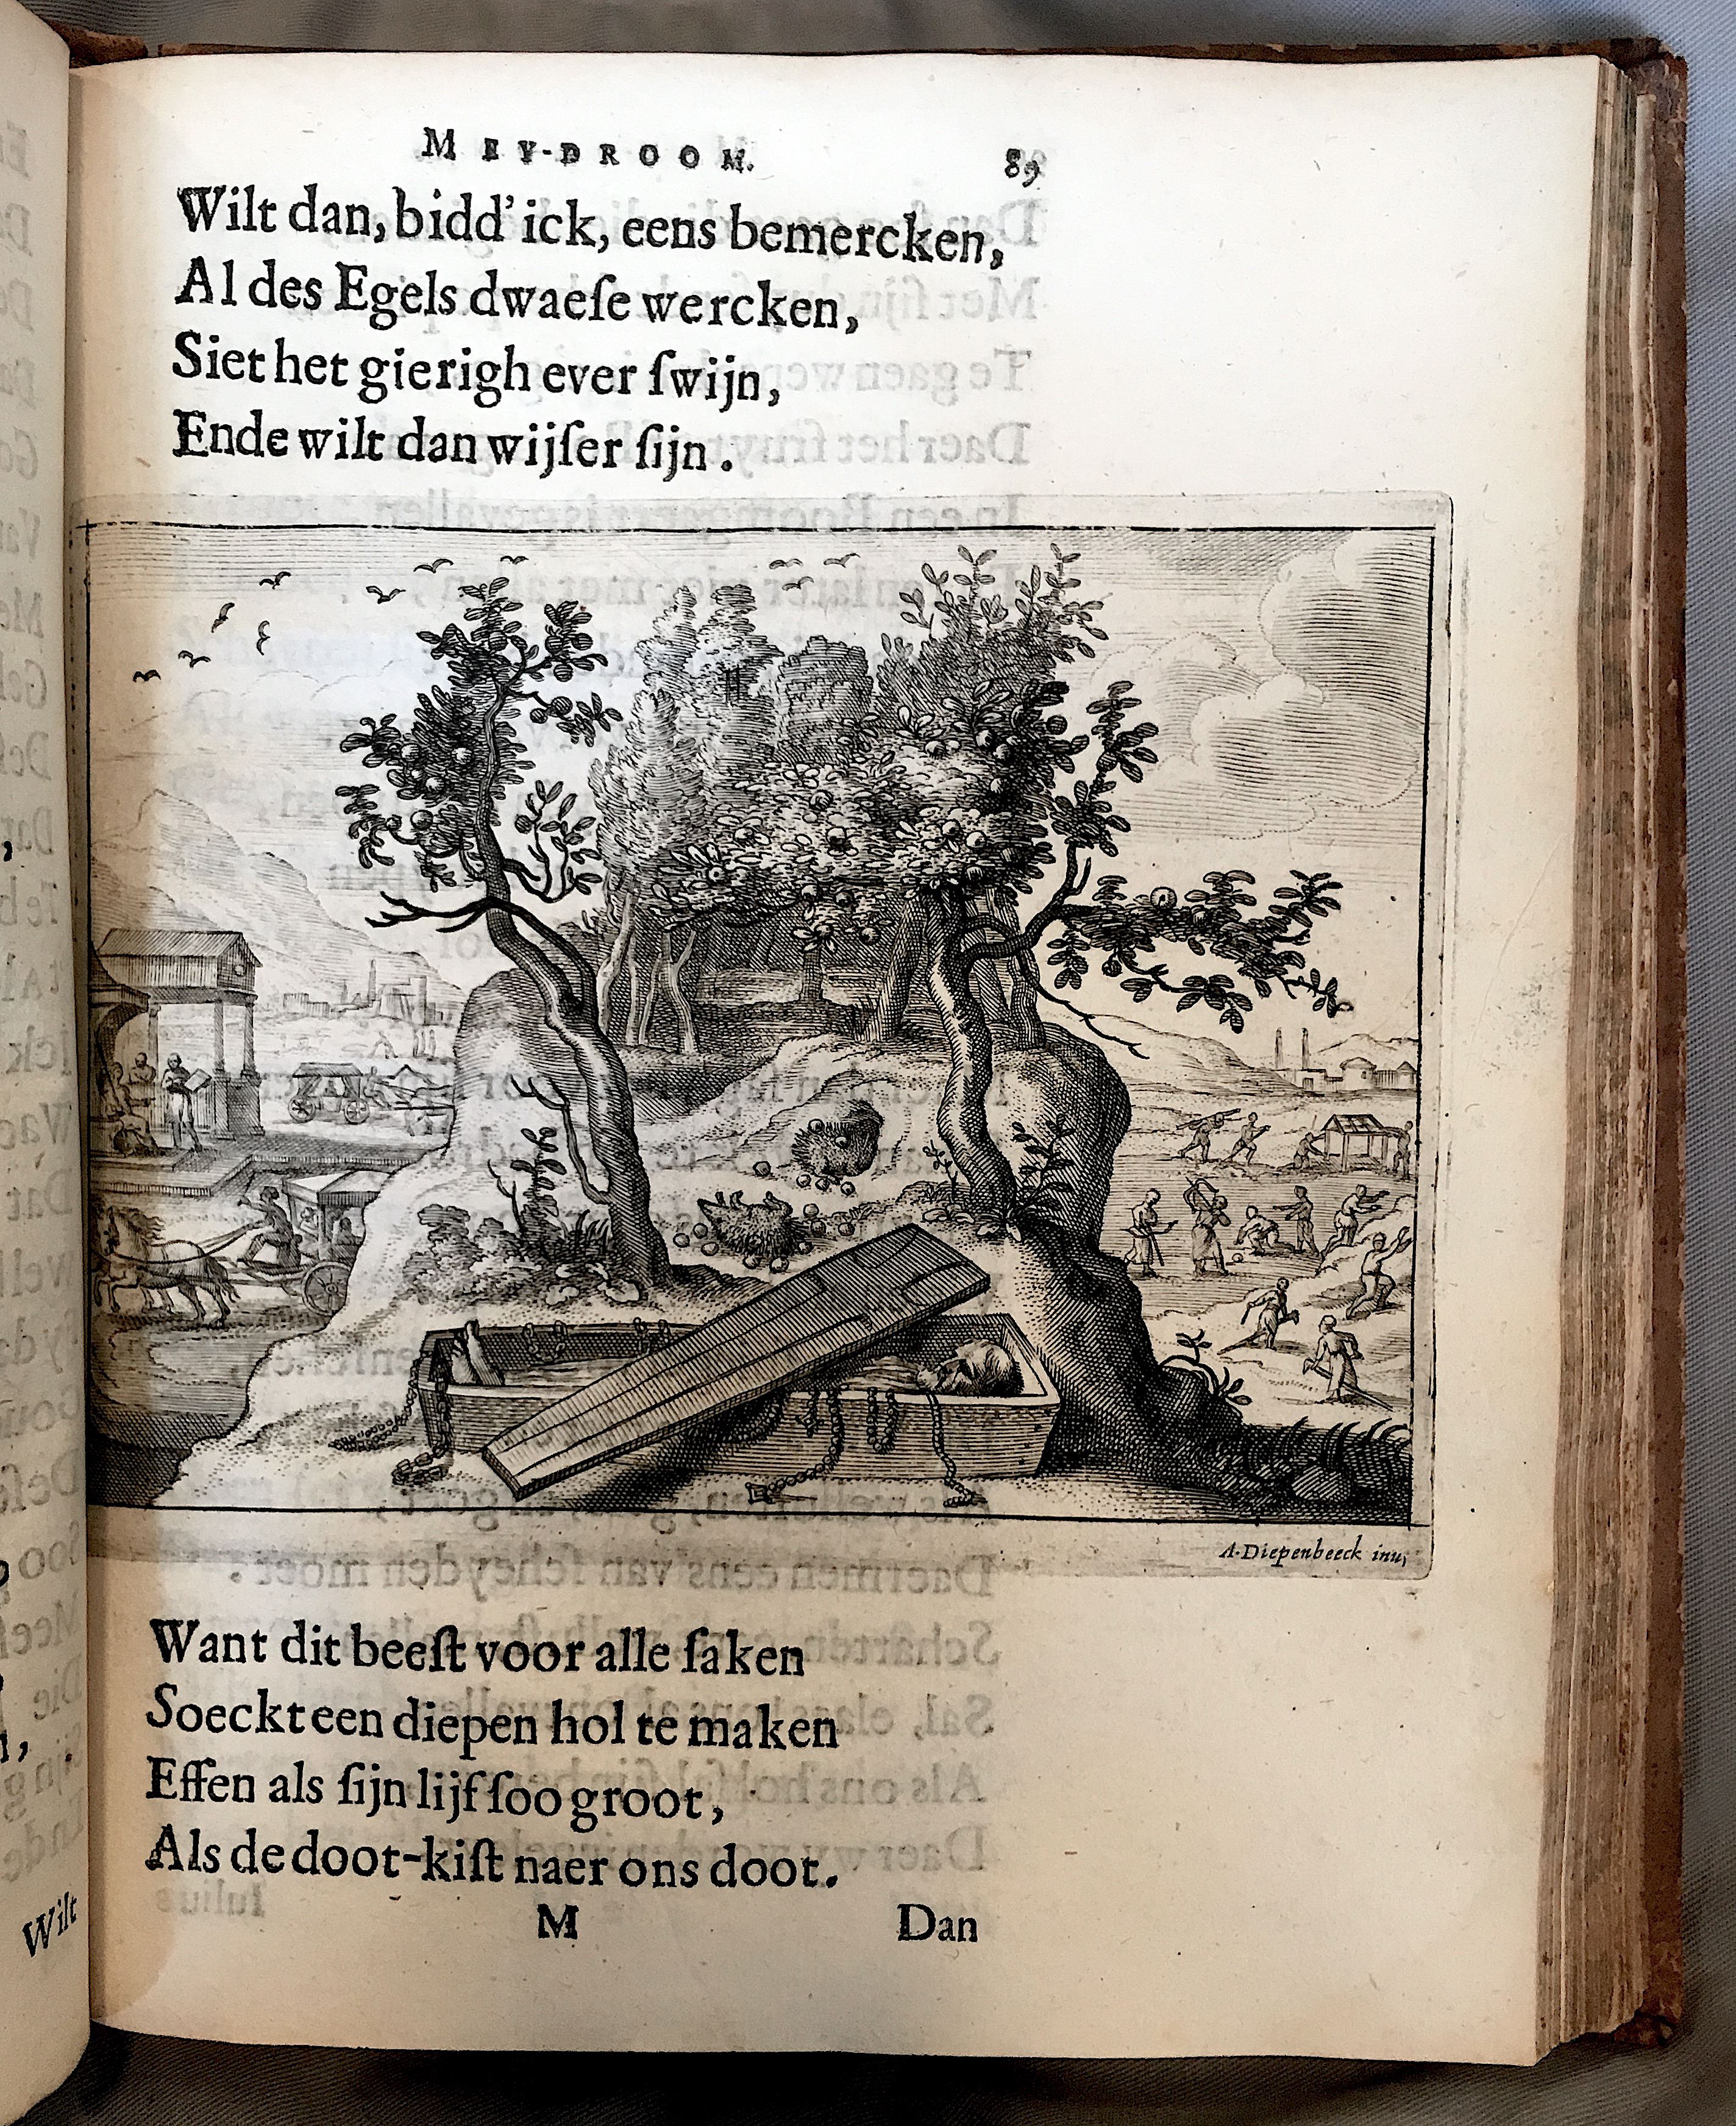 MEY-DROOM. 89
Wilt dan, bidd' ick, eens bemercken,
Al des Egels dwaeſe wercken,
Siet het gierigh ever ſwijn,
Ende wilt dan wijſer ſijn.
A. Diepenbeeck inu,
Want dit beeſt voor alle ſaken
Soeckt een diepen hol te maken
Effen als ſijn lijf ſoo groot,
Als de doot-kiſt naer ons doot.
M Dan
Wilt